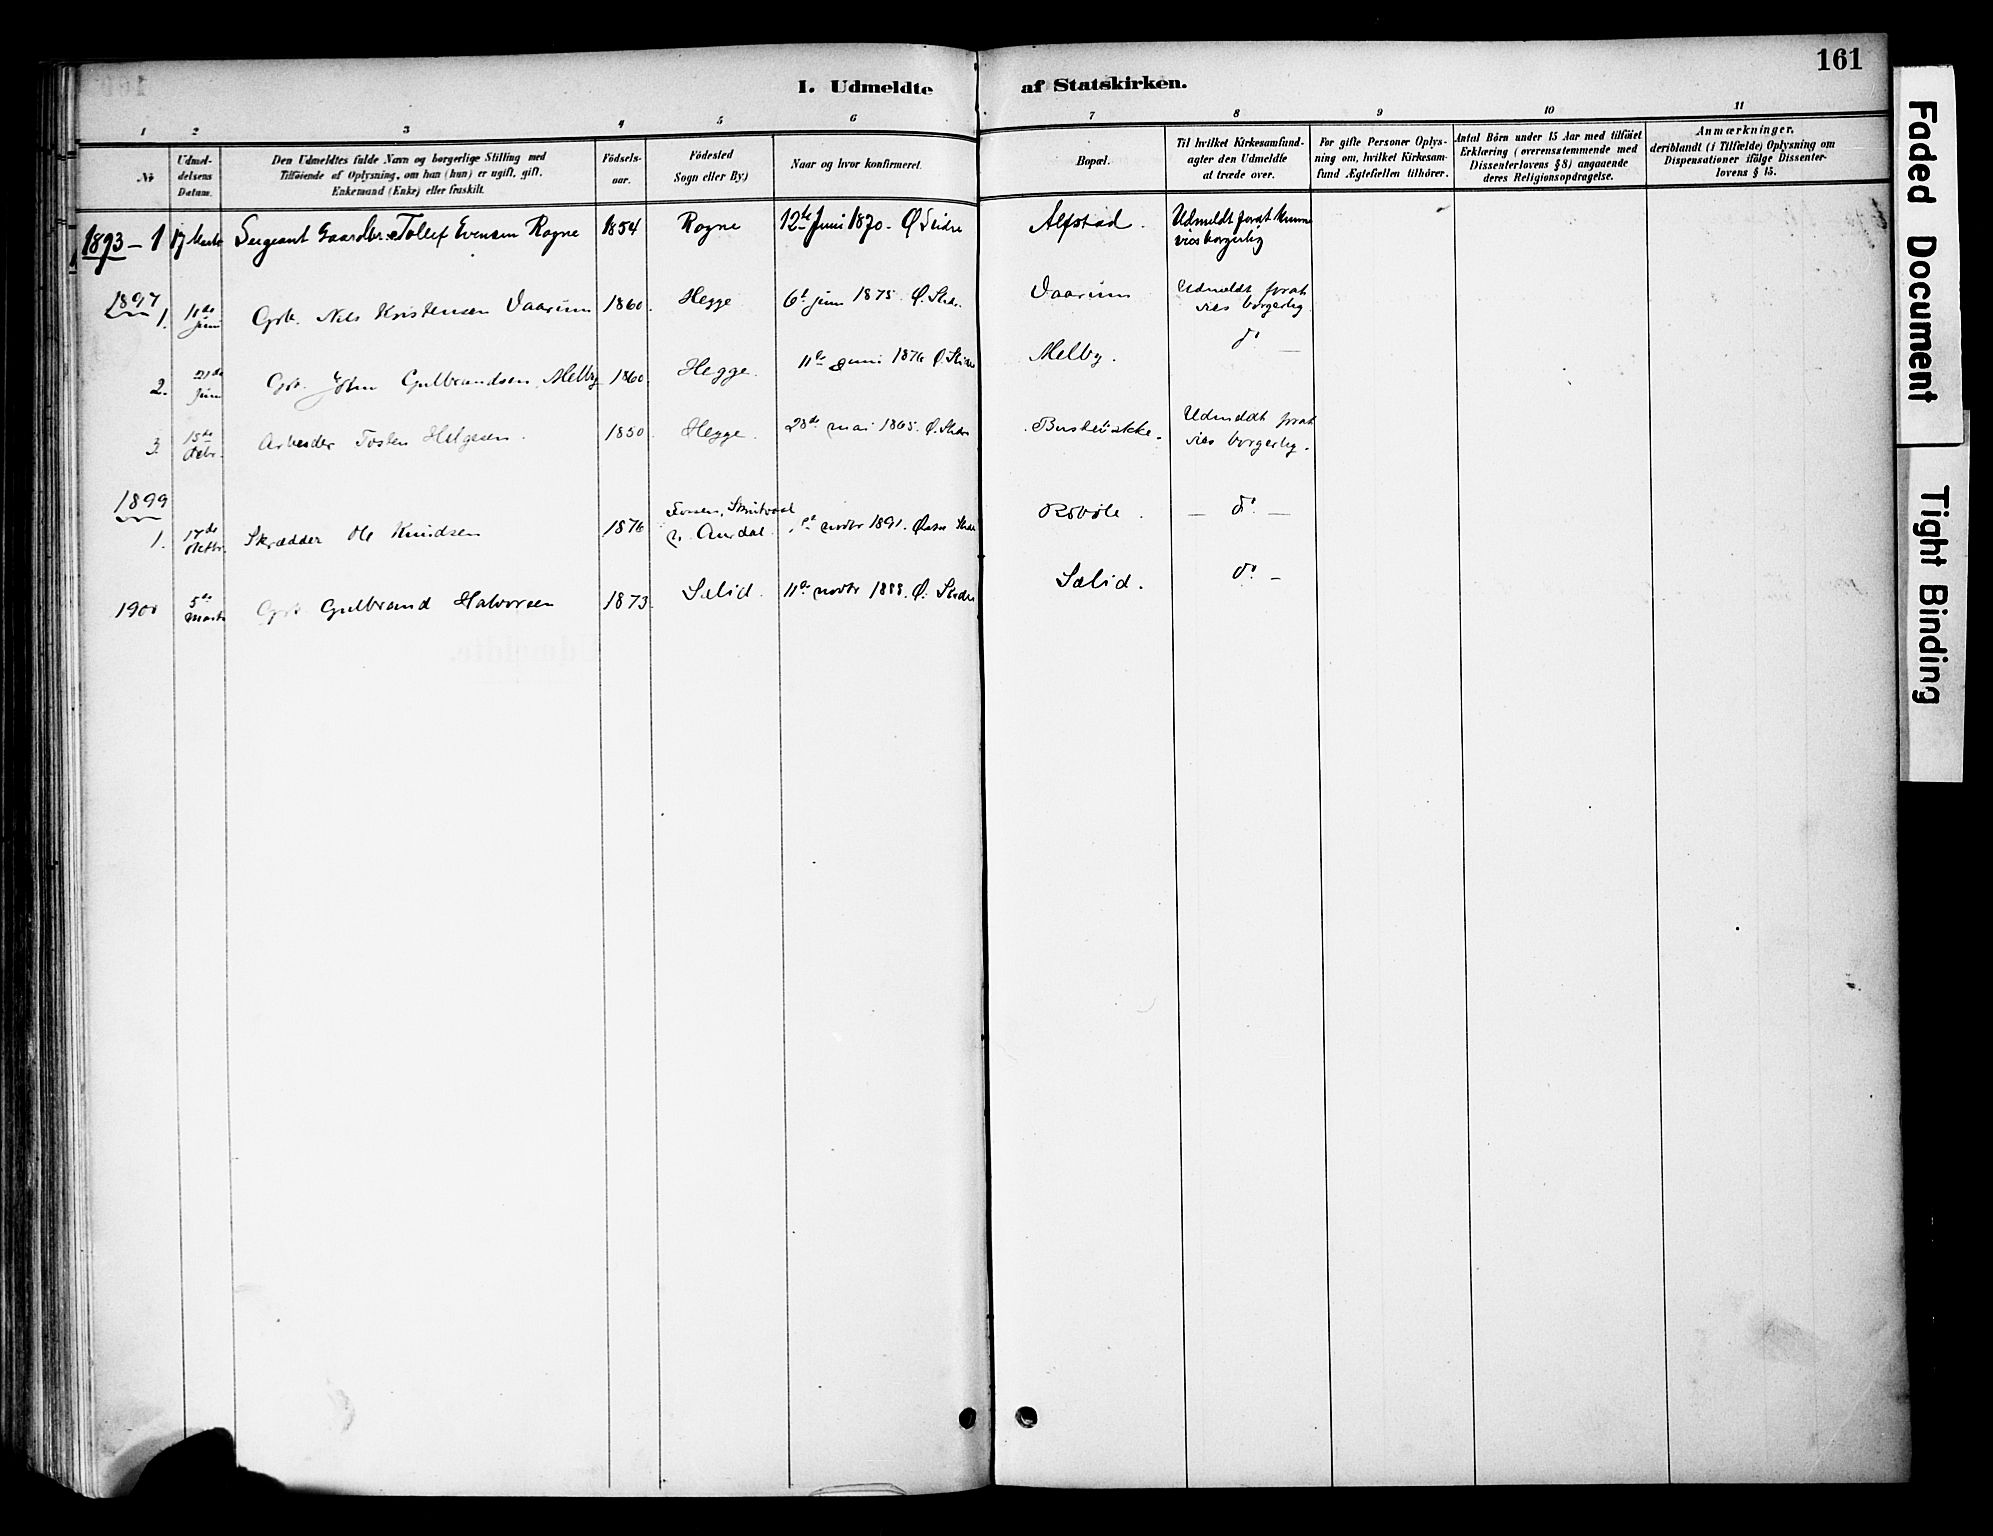 161
I. Udmeldte af Statskirken.
1 2 3 4 5 6 7 8 9 10 11
No
Udmel-
delsens
Datum.
Den Udmeldtes fulde Navn og borgerlige Stilling med
Tilføiende af Oplysning, om han (hun) er ugift, gift,
Enkemand (Enke) eller fraskilt.
Fødsels-
aar.
Fødested
Sogn eller By)
Naar og hvor konfirmeret.
Bopæl.
Til hvilket Kirkesamfund-
agter den Udmeldte
at træde over.
For gifte Personer Oplys-
ning om, hvilket Kirkesam-
fund Ægtefællen tilhører.
Antal Børn under 15 Aar med tilføiet
Erklæring (overensstemmende med
Dissenterlovens § 8) angaaende
deres Religionsopdragelse.
Anmærkninger,
deriblandt (i Tilfælde) Oplysning om
Dispensationer ifølge Dissenter-
lovens § 15.
1893 - 1 17 Marts Sergeant Gaardbr. Tollef Evensen Rogne 1854 Rogne 12te Juni 1870. Ø Slidre Alfstad. Udmeldt forat kunne
vies borgerlig
1897
1. 11de Juni Grb. Nils Kristensen Vaarum 1860. Hegge 6t juni 1875. Ø. Slidr. Vaarum Udmeldt forat
vies borgerlig
2. 21de Juni Grb. John Gulbrandsen Melby 1860. Hegge. 11te Juni 1876 Ø. Slidre Melby. do —
3. 15de Arbeider Tosten Helgesen. 1850. Hegge. 28de mai 1865. Ø. Slidre Udmeldt forat
vies borgerlig.
1899
1. 17de Oktbr. Skrædder Ole Knudsen 1876 Fossen, Skrutvold
n. Aurdal. novbr 1891. Østre Slidre Robøle. — do —
1900 5te Marts Grb Gulbrand Halvorsen 1873. Sælid. 11te novbr 1888. Ø. Slidre Sælid. do —
Faded Document
Tight Binding